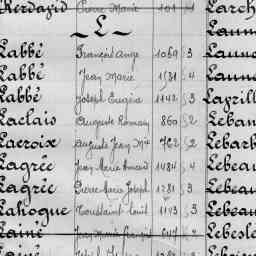 Kerdavid Pierre Marie 101 1 Larch
L
Labbé François Ange 1069 3
Labbé Jean Marie 1531 4
Labbé Joseph Eugène 1142 3
Laclais Auguste Romain 860 2 Leban
Lacroix Auguste Jean Mie 762 2 Lebarb
Lagrée Jean Marie Amand 1484 4 Lebeau
Lagrée Pierre Marie Joseph 1281 3 Lebeau
Lahogue Toussaint Louis 1193 3 Lebeau
Lainé 2 Lebesle
Lainé